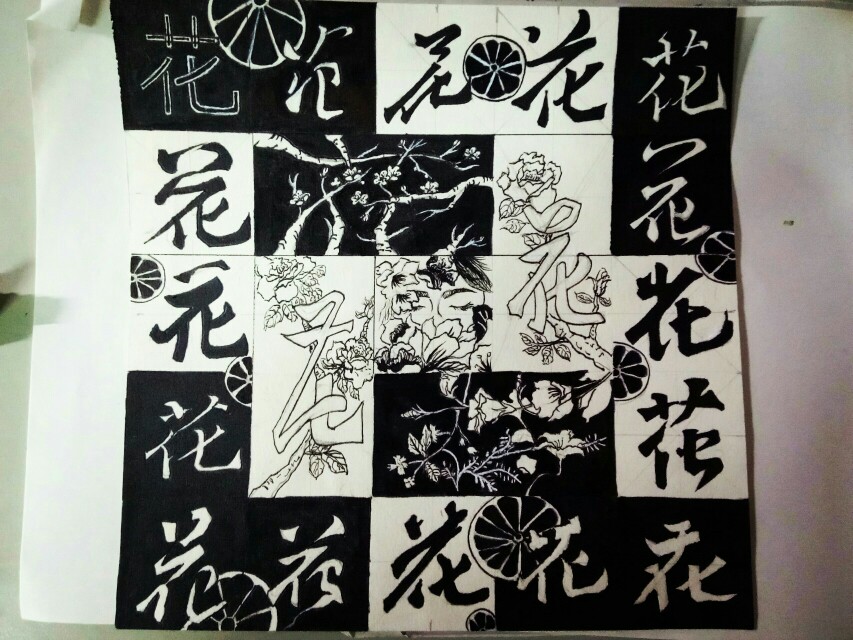 花 花 花 花 花
花 花 花
花 花 花
花 花
花 花 花 花 花